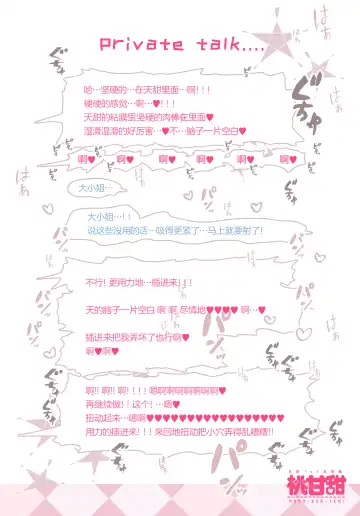 Private talk....
哈…坚硬的…在天甜里面…啊!!!
硬硬的感觉…啊…♥!!!
天甜的粘膜里坚硬的肉棒在里面♥
湿漉湿漉的好厉害…♥不…脑子一片空白♥
啊♥ 啊♥ 啊♥ 啊♥ 啊♥ 啊♥ 啊♥
大小姐…
大小姐…!!
说这些没用的话…吸得更紧了…马上就要射了!
不行!更用力地…插进来!!!
天的脑子一片空白 啊 啊 尽情地♥♥♥♥ 啊…♥
插进来把我弄坏了也行啊♥
啊♥啊♥
啊!! 啊!! 啊!!!!嗯啊啊啊啊啊啊啊♥
再继续做!!这个!…嗯♥
扭动起来…嗯啊♥♥♥♥♥♥♥♥♥♥♥♥♥♥♥♥♥
用力的插进来!!!来回地扭动把小穴弄得乱糟糟!!
桃甘甜
はぁ
ぐちゅ
パンッ